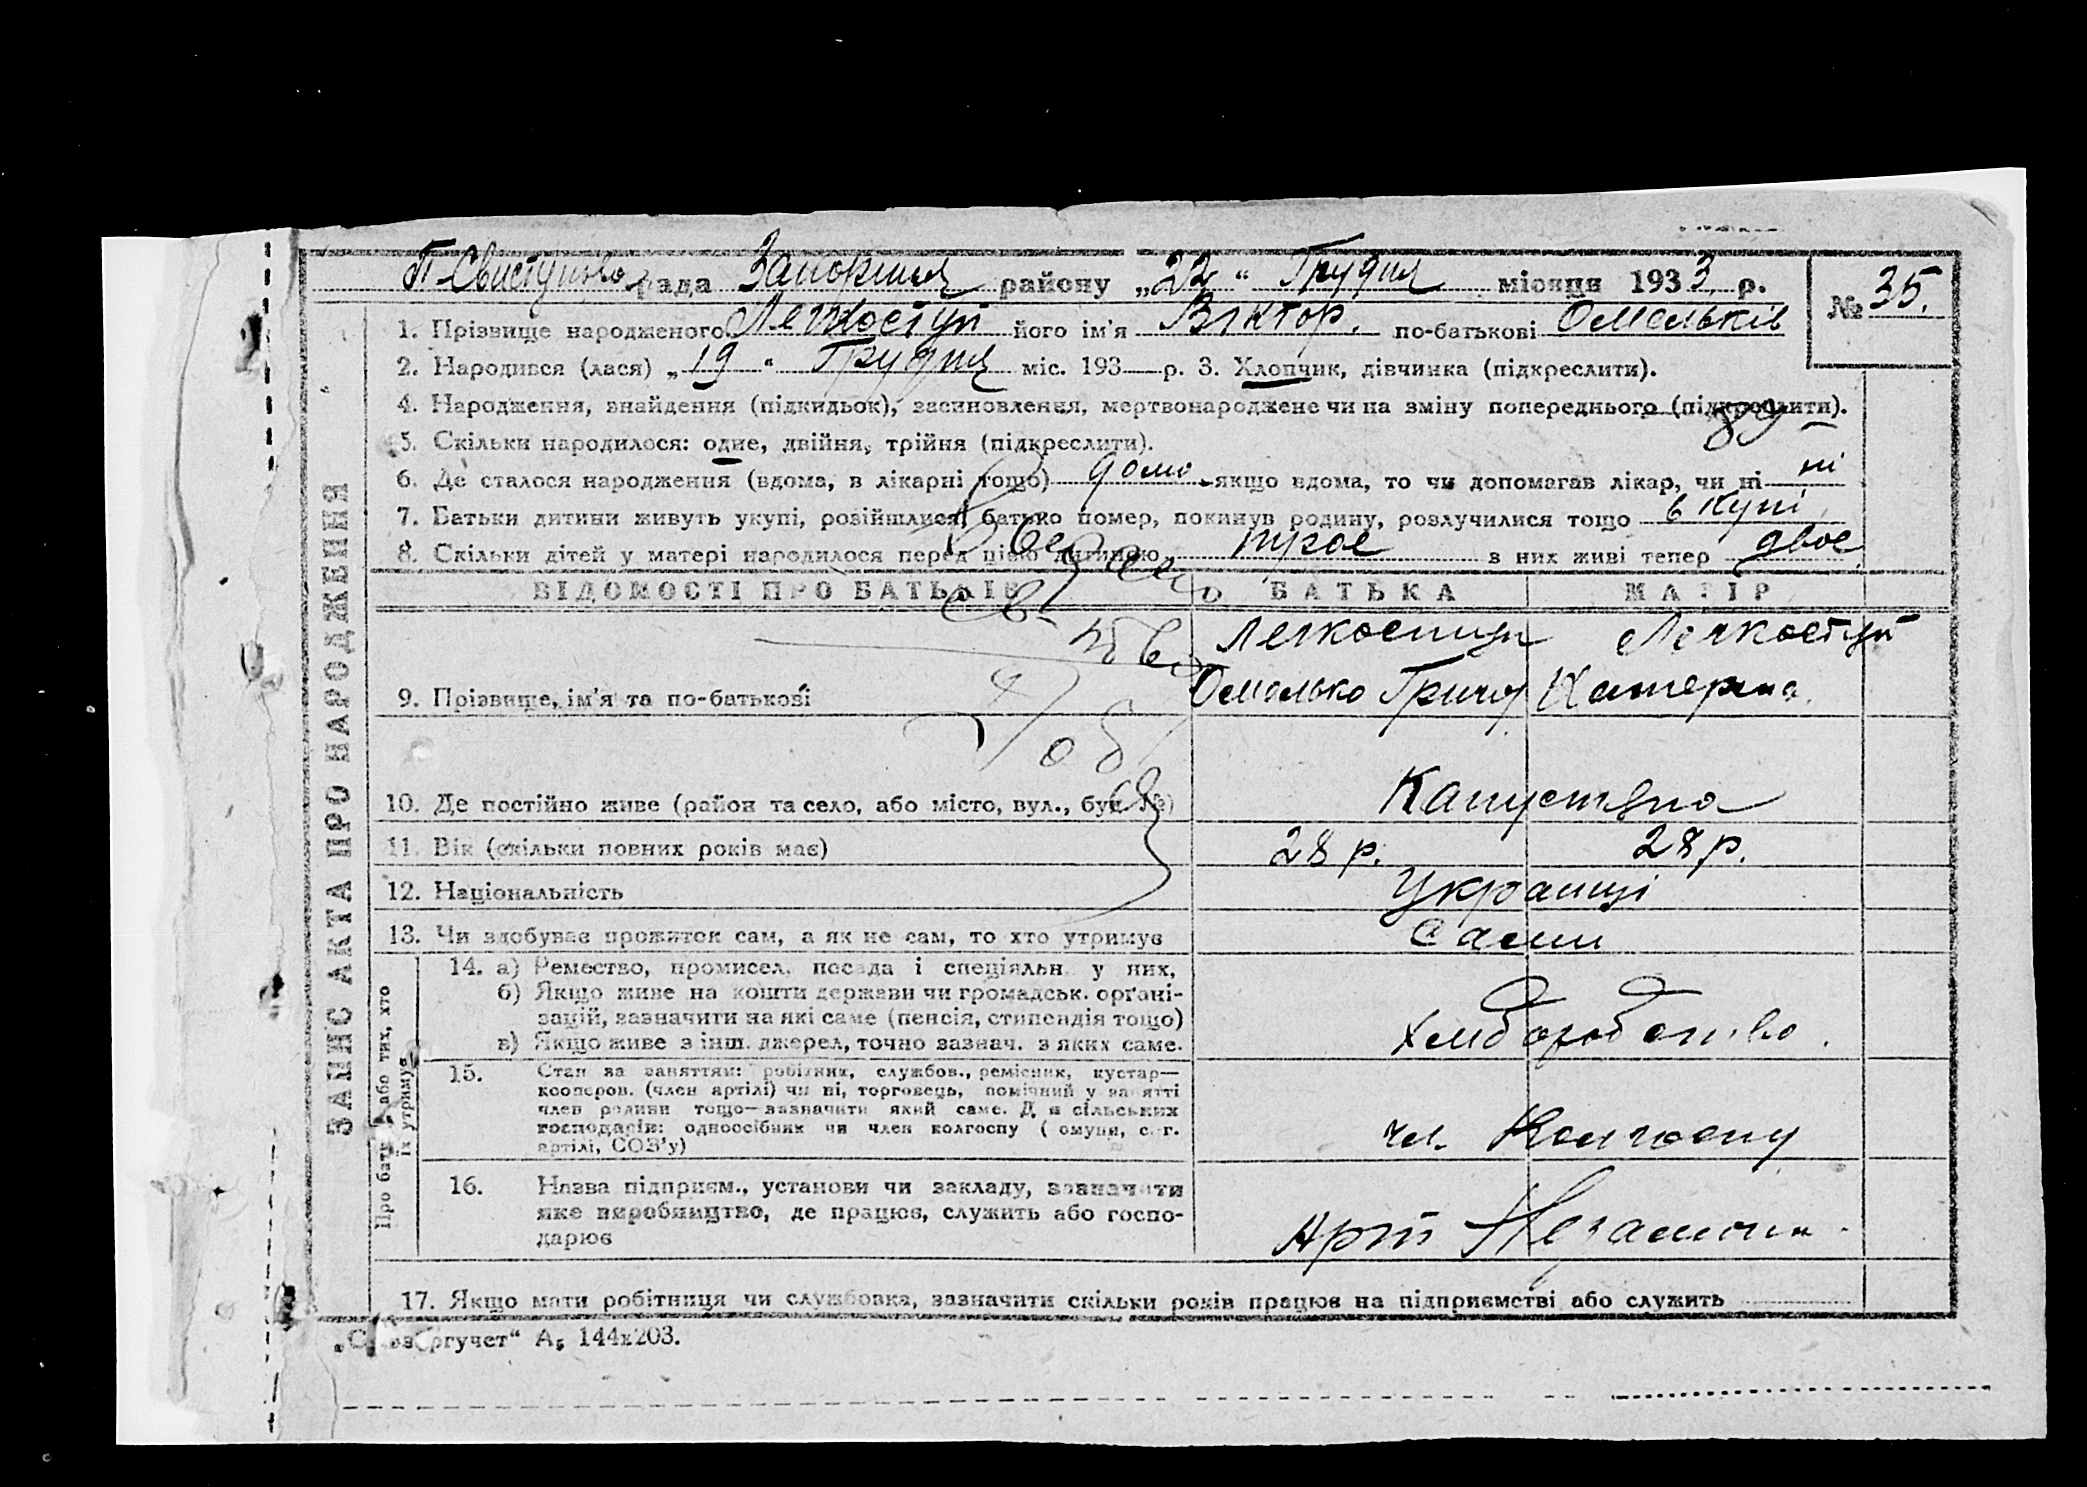 П-Свистуново рада Запоріжжя району „22“ Грудня місяця 1933 р.
№ 35.
1. Прізвище народженого Легкоступ його ім'я Віктор. по-батькові Омельків
2. Народився (лася) „19“ Грудня міс. 193 р. 3. Хлопчик, дівчинка (підкреслити).
4. Народження, знайдення (підкидьок), засиновлення, мертвонароджене чи на зміну попереднього (підкреслити).
89
5. Скільки народилося: одне, двійня, трійня (підкреслити).
6. Де сталося народження (вдома, в лікарні тощо) дома якщо вдома, то чи допомагав лікар, чи ні ні
7. Батьки дитини живуть укупі, розійшлися, батько помер, покинув родину, розлучилися тощо в купі
8. Скільки дітей у матері народилося перед цією дитиною в них живі тепер двоє
ВІДОМОСТІ ПРО БАТЬКІВ БАТЬКА МАТІР
Легкоступ Легкоступ
9. Прізвище, ім'я та по-батькові Омелько Григ Катерина.
10. Де постійно живе (район та село, або місто, вул., буд. №) Капустяна
11. Вік (скільки повних років має) 28 р. 28 р.
12. Національність Українці
13. Чи здобуває прожиток сам, а як не сам, то хто утримує Сами
ЗАПИС АКТА ПРО НАРОДЖЕННЯ
Про бать або тих, хто їх утримує
14. а) Ремество, промисел, посада і спеціяльн. у них,
б) Якщо живе на кошти держави чи громадськ. органі-
зацій, зазначити на які саме (пенсія, стипендія тощо)
в) Якщо живе з інш. джерел, точно зазнач. з яких саме.
Хліборобство.
15. Стан за заняттям: робітник, службов., ремісник, кустар—
кооперов. (член артілі) чи ні, торговець, помічний у занятті
член родини тощо—зазначити який саме. Для сільських
господарів: одноосібник чи член колгоспу (комуни, с.-г.
артілі, СОЗ'у)
чл. Колгоспу
16. Назва підприєм., установи чи закладу, зазначити
яке виробництво, де працює, служить або госпо-
дарює
Арт Незаможн.
17. Якщо мати робітниця чи службовка, зазначити скільки років працює на підприємстві або служить
„Союзоргучет“ А5 144х203.